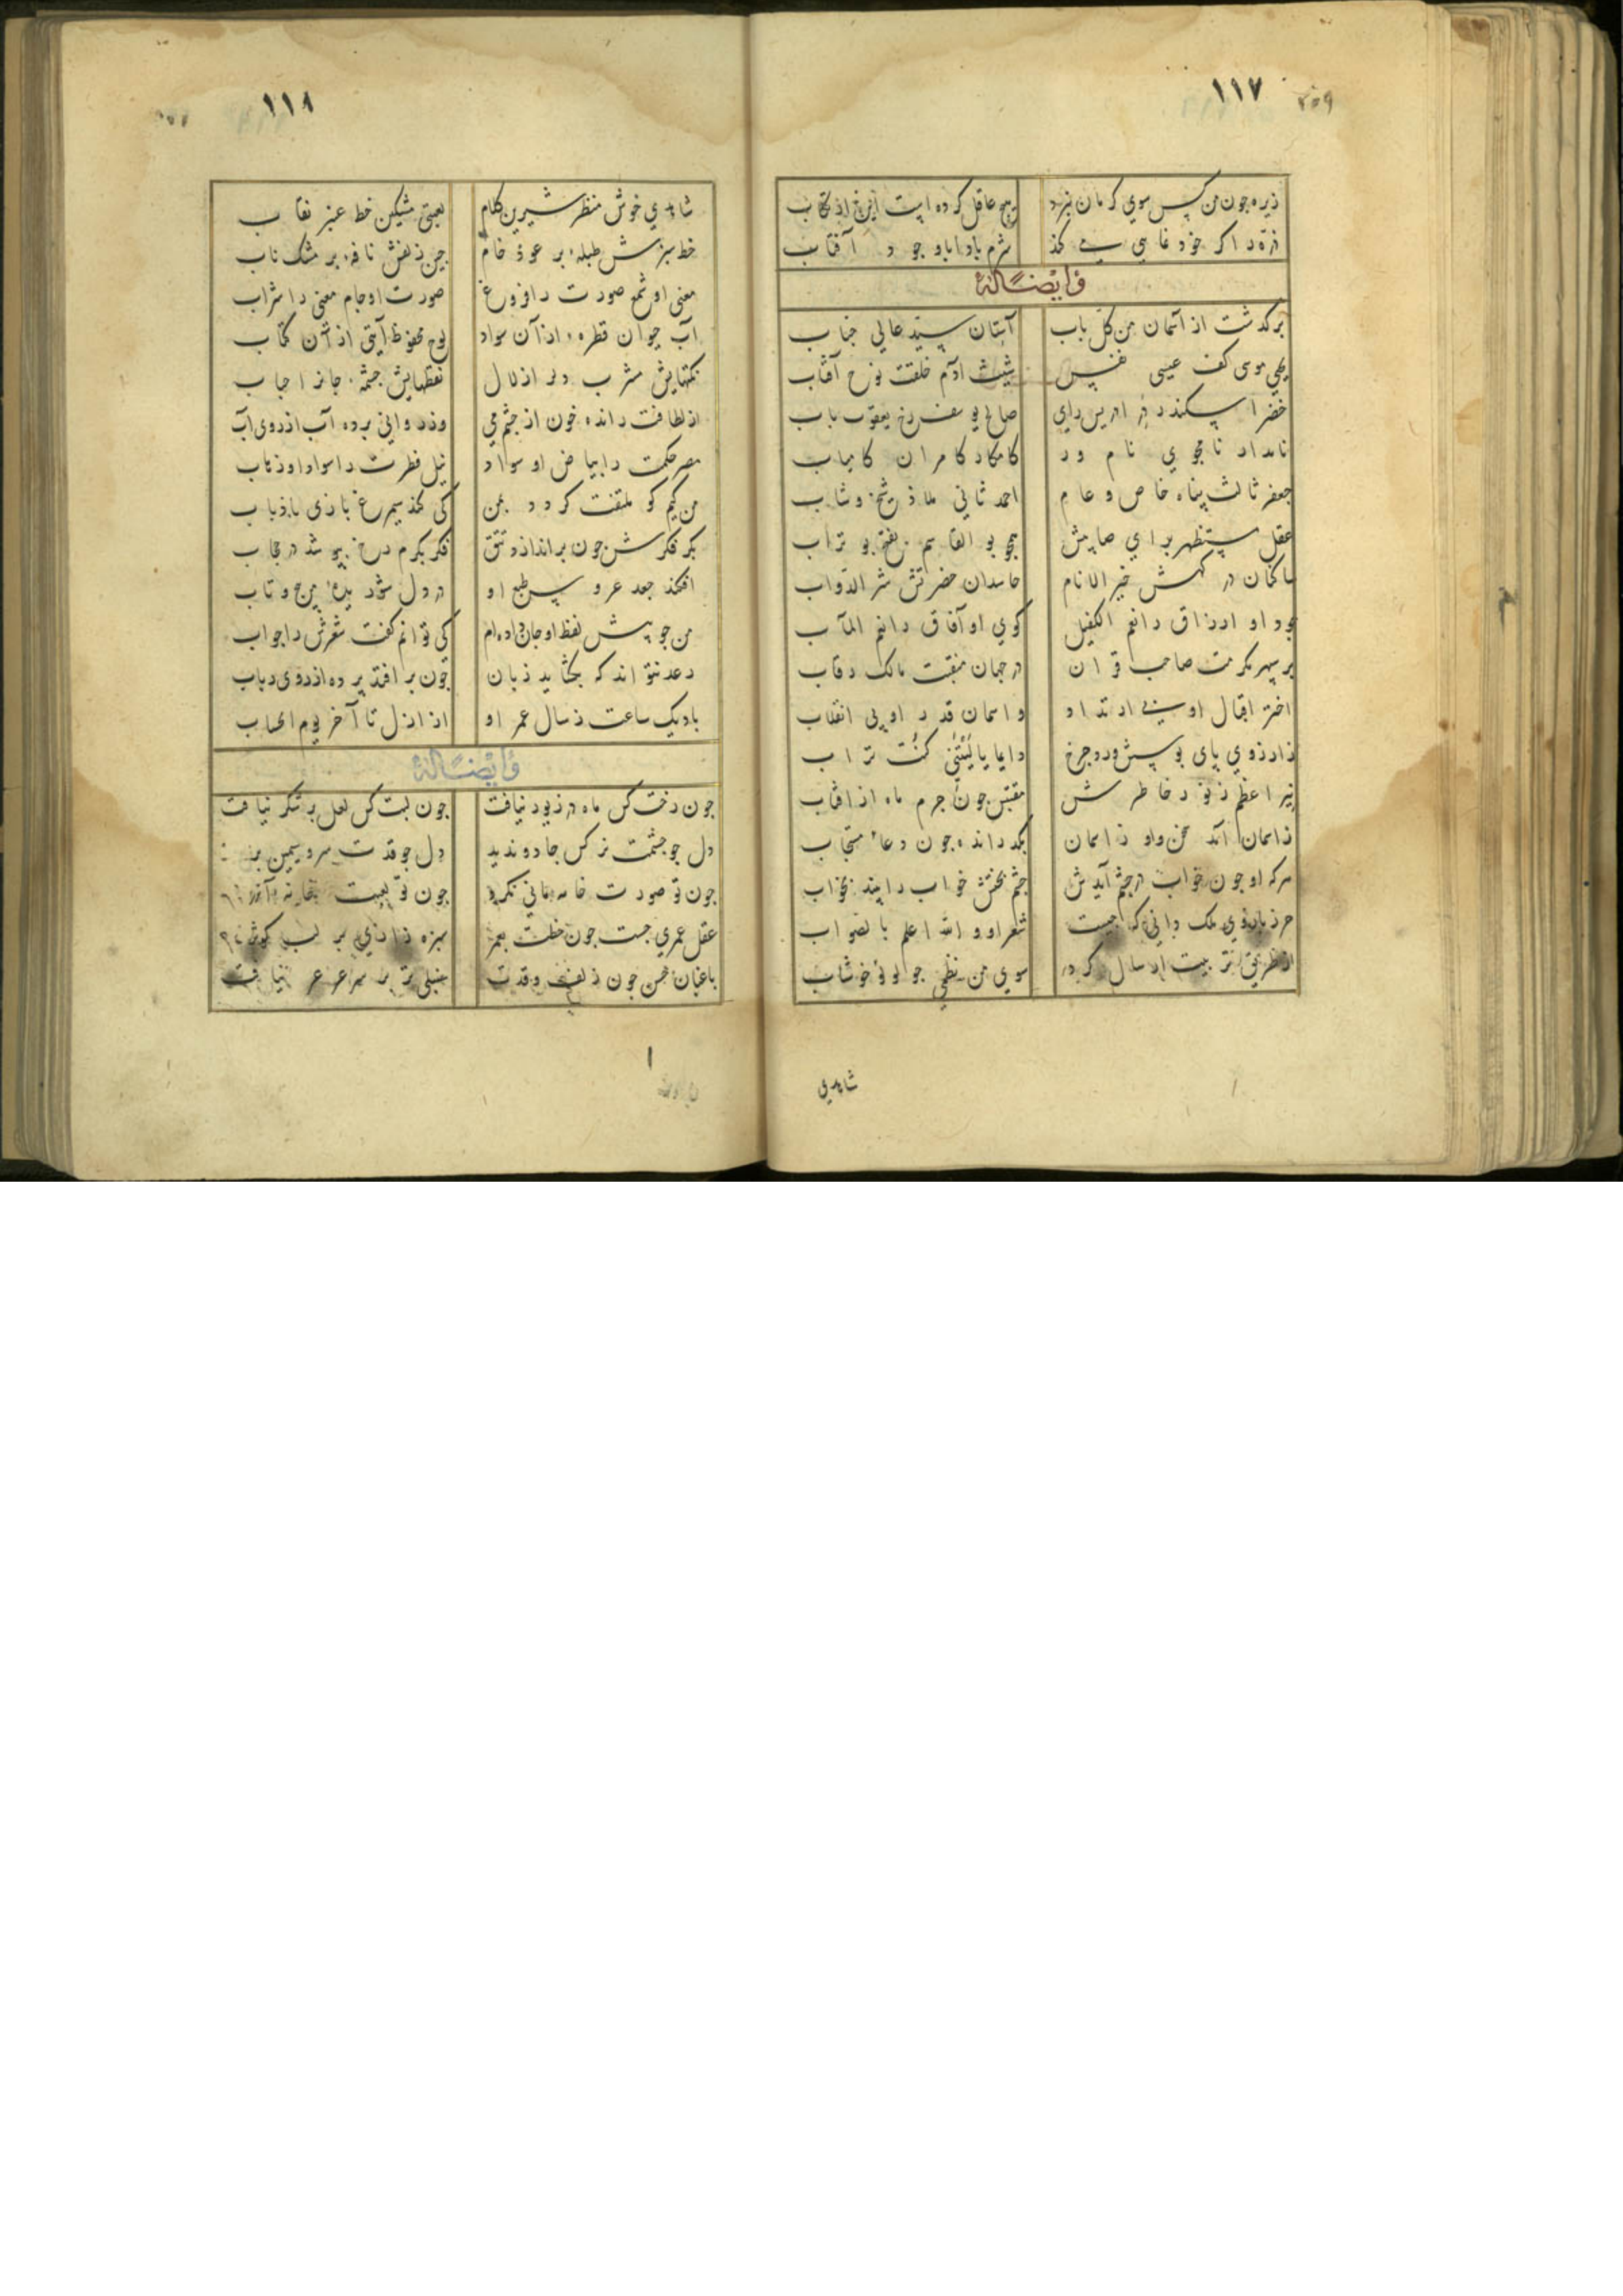 ١١٧
زیره جون من کس سوی کرمان نبرد
هیچ عاقل کرده است این
ذره را کر خود نمایی می کند
شرم بادا با وجود آفتاب
وایضاً له
برکذشت از آسمان من کل باب
آستان سید عالی جناب
یحیی موسی کف عیسی نفس
شیث آدم خلقت نوح آفتاب
خضر اسکندر در ادریس رای
صالح یوسف رخ یعقوب باب
نامدار نامجوی نام ور
کامکار کامران کامیاب
جعفر ثالث پناه خاص و عام
احمد ثانی ملاذ شیخ و شاب
عقل مستظهر برای صایبش
همجو بو القاسم بو تراب
ساکنان درکهش خیر الانام
حاسدان حضرتش شر الدواب
جود او ارزاق را نعم الکفیل
کوی او آفاق را نعم المآب
بر سپهر مکرمت صاحب قران
در جهان منقبت مالک رقاب
اختر اقبال او بی ارتداد
و آسمان قدر او بی انقلاب
زارزوی پای بوسش ورد جرخ
دایما یا لیتنی کنت تراب
نیر اعظم ز نور خاطرش
مقتبس جون جرم ماه از آفتاب
زاسمان آمد سخن واو زاسمان
بکدرانده جون دعاء مستجاب
هرکه او جون خواب در جشم آیدش
جشم بختش خواب را بیند بخواب
حرز بازوی ملک دانی که جیست
شعر او والله اعلم بالصواب
از طریق تربیت ارسال کرد
سوی من نظمی جو لولو خوشاب
شاهدی
١١٨
شاهدی خوش منظر شیرین کلام
لعبتی مشکین خط عنبر نقاب
خط سبزش طبله بر عود خام
جین زلفش نافه بر مشک ناب
معنی او شمع صورت را فروغ
صورت او جام معنی را شراب
آب حیوان قطره از آن سواد
لوح محفوظ آیتی از آن کتاب
نکتهایش مشرب زلال
نقطهایش جشمه جانرا حباب
از لطافت رانده خون از جشم می
وز روانی برده آب از روی آب
مصر حکمت را بیاض او سواد
نیل فطرت را سواد او ذهاب
من کیم کو ملتفت کردد بمن
کی کند سیمرغ بازی با ذباب
بکر فکرش جون براندازد تتق
فکر بکرم رخ بپوشد در حجاب
افکند جعد عروس طبع او
در دل شوریده پیج و تاب
من جو پیش لفظ او جان داده ام
کی توانم کفت شعرش را جواب
رعد نتواند که بکشاید زبان
جون برافتد پرده از روی رباب
باد یک ساعت ز سال عمر او
از ازل تا آخر یوم الحساب
وایضاً له
جون رخت کس ماه در زیور نیافت
جون لبت کس لعل پر شکر نیافت
دل جو جشمت نرکس جادو ندید
دل جو قدت سرو سیمین بر
جون تو صورت خامه مانی نکرد
جون تو
عقل عمری جست جون خطت بعمر
سبزه زاری بر لب کوثر
باغبان حسن جون زلف و قدت
سنبلی تر بر سر عرعر نیافت